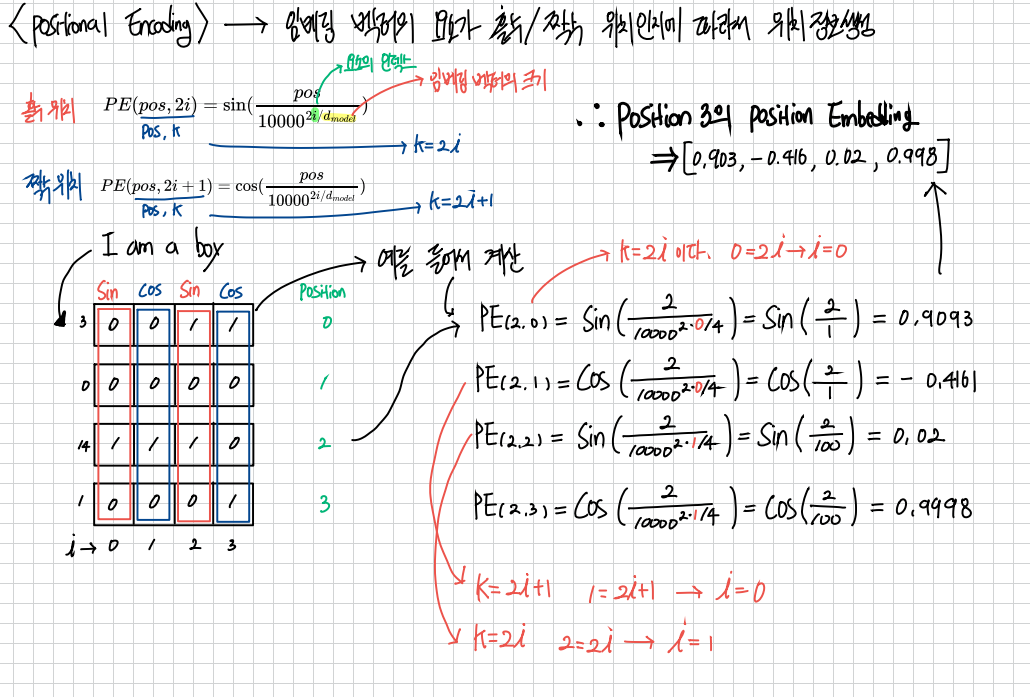 <Positional Encoding> → 임베딩 벡터의 요소가 홀수/짝수 위치인지에 따라서 위치정보생성
요소의 인덱스
임베딩 벡터의 크기
홀수 위치 PE(pos, 2i) = sin(pos / 10000^{2i/d_{model}})
Pos, K → K=2i
짝수 위치 PE(pos, 2i + 1) = cos(pos / 10000^{2i/d_{model}})
Pos, K → K=2i+1
∴ Position 3의 Position Embedding
⇒ [0.903, -0.416, 0.02, 0.998]
I am a box
Sin Cos Sin Cos Position
3 0 0 1 1 0
0 0 0 0 0 1
14 1 1 1 0 2
1 0 0 0 1 3
i → 0 1 2 3
예를 들어서 계산
K=2i 이다. 0=2i → i=0
PE(2,0) = Sin(2 / 10000^{2·0/4}) = Sin(2/1) = 0.9093
PE(2,1) = Cos(2 / 10000^{2·0/4}) = Cos(2/1) = -0.4161
PE(2,2) = Sin(2 / 10000^{2·1/4}) = Sin(2/100) = 0.02
PE(2,3) = Cos(2 / 10000^{2·1/4}) = Cos(2/100) = 0.9998
K=2i+1 1=2i+1 → i=0
K=2i 2=2i → i=1